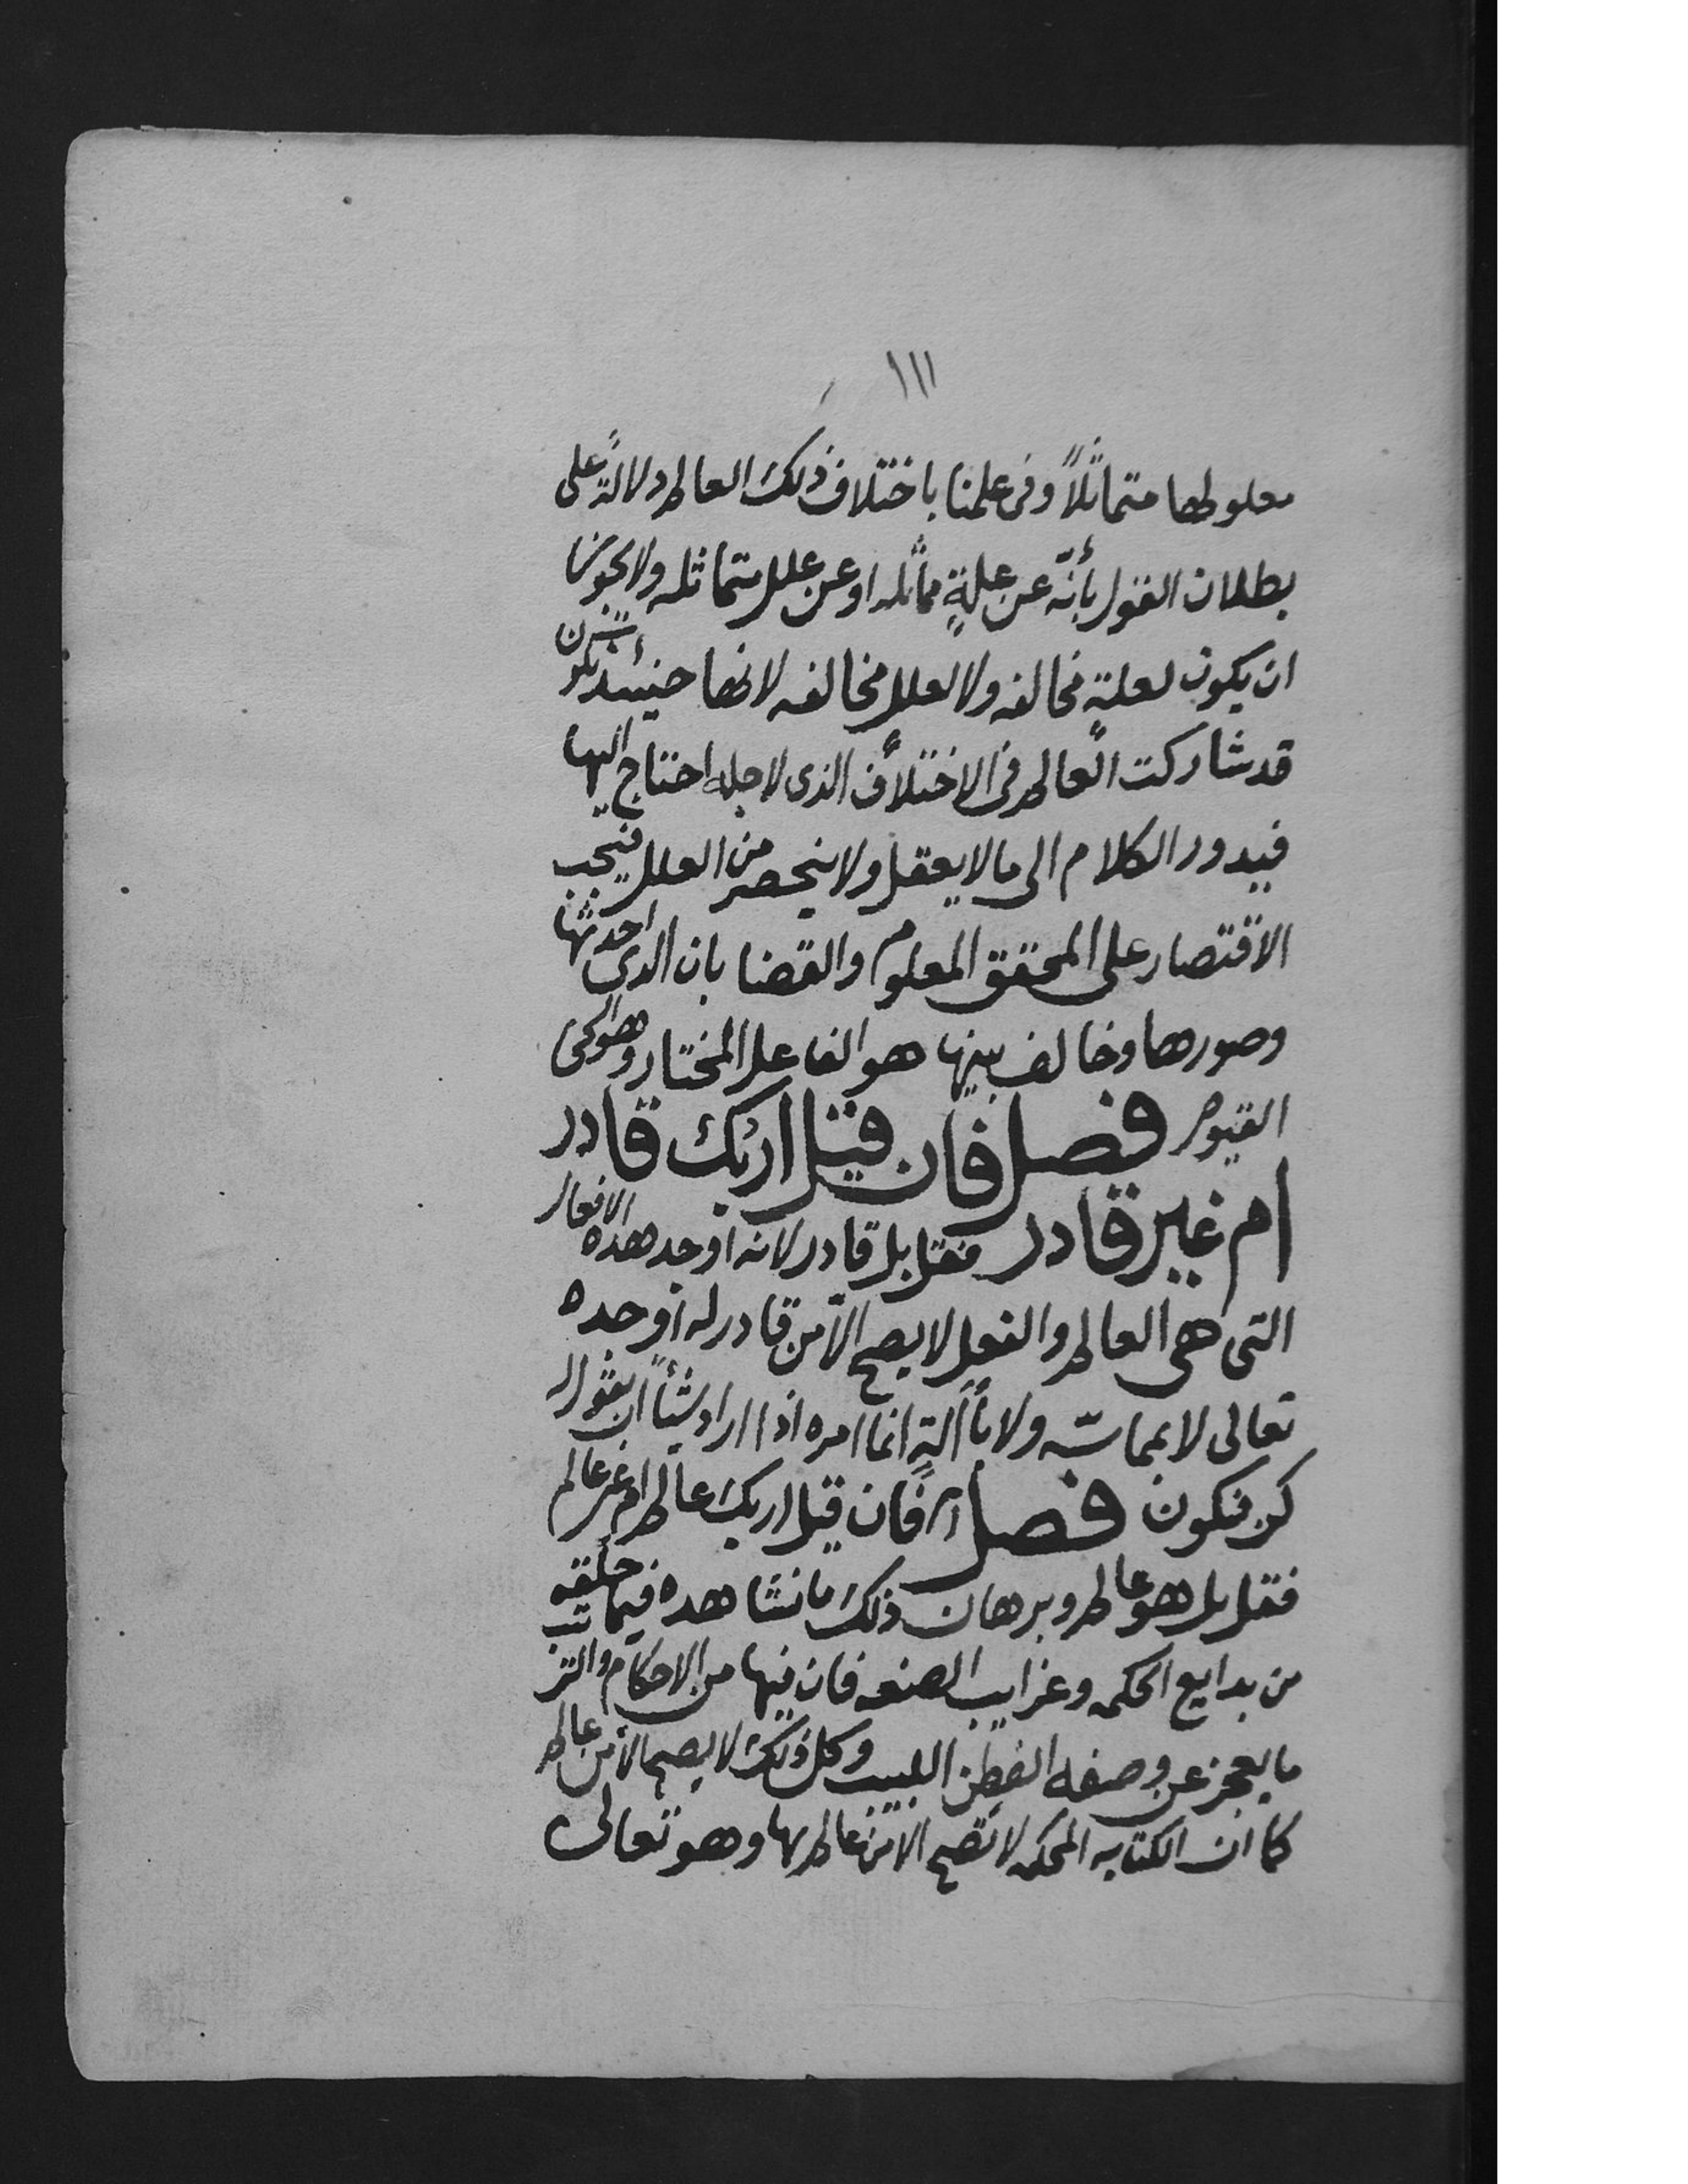 ١١١
معلولها متماثلاً وفى علمنا باختلاف ذلك العالم دلالةً على
بطلان القول بأنّه عن علةٍ مماثله او عن علل متماثله ولا يجوز
ان يكون لعلةٍ مخالفه ولا لعلل مخالفه لانها حينئذ تكون
قد شاركت العالم فى الاختلاف الذى لاجله احتاج اليها
فيدور الكلام الى ما لا يعقل ولا ينحصر من العلل فيجب
الاقتصار على المحقق المعلوم والقضا بان الذى احدثها
وصورها وخالف بينها هو الفاعل المختار وهو الحى
القيوم فصل فان قيل اربك قادر
ام غير قادر فقل بل قادر لانه اوجد هذه الافعال
التى هى العالم والفعل لا يصح الا من قادر له اوجده
تعالى لا بمماسّه ولا بآلةٍ انما امره اذا اراد شيئاً ان يقول له
كن فيكون فصل فان قيل اربك عالم ام غير عالم
فقل بل هو عالم وبرهان ذلك ما نشاهده فيما خلقه
من بدايع الحكمه وغرايب الصنعه فان فيها من الاحكام والترتيب
ما يعجز عن وصفه الفطِن اللبيب وكل ذلك لا يصح الا من عالم
كما ان الكتابه المحكمه لا تصح الا من عالم بها وهو تعالى